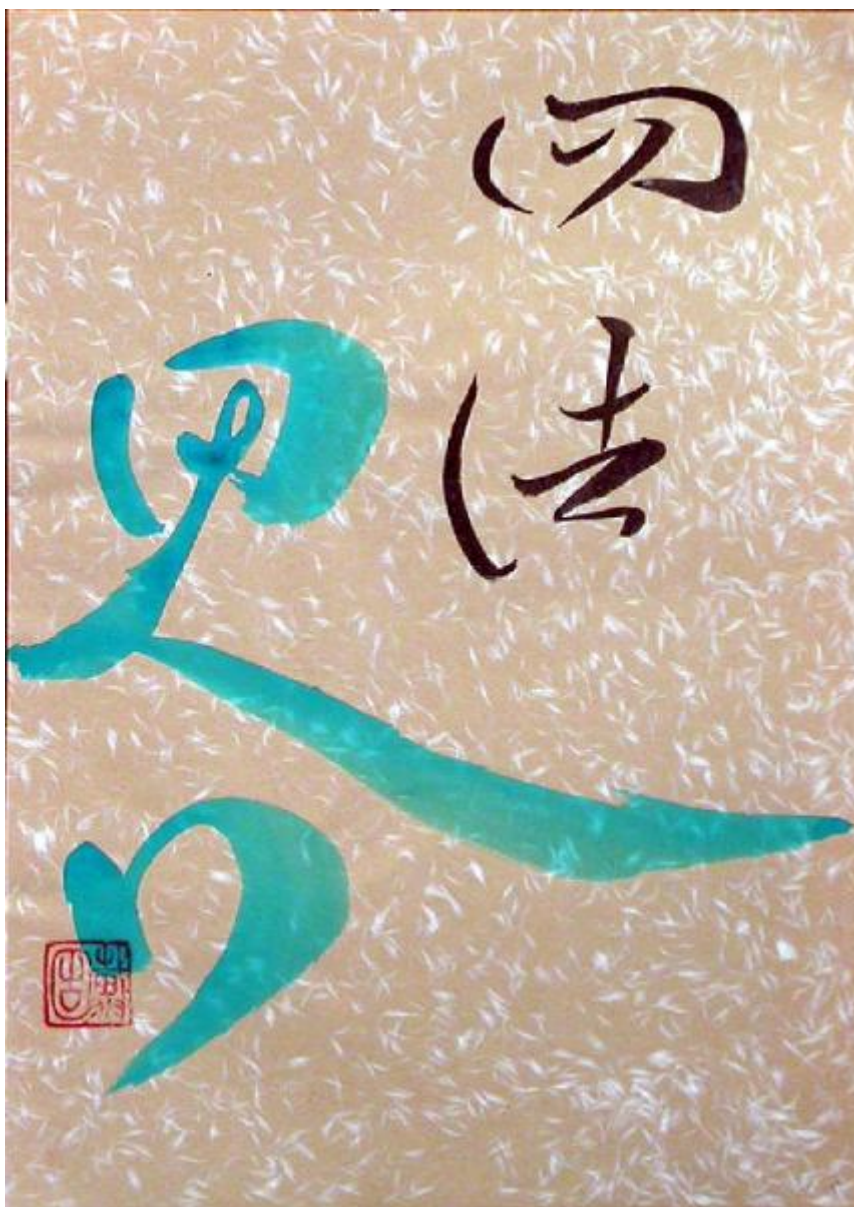 四法
界